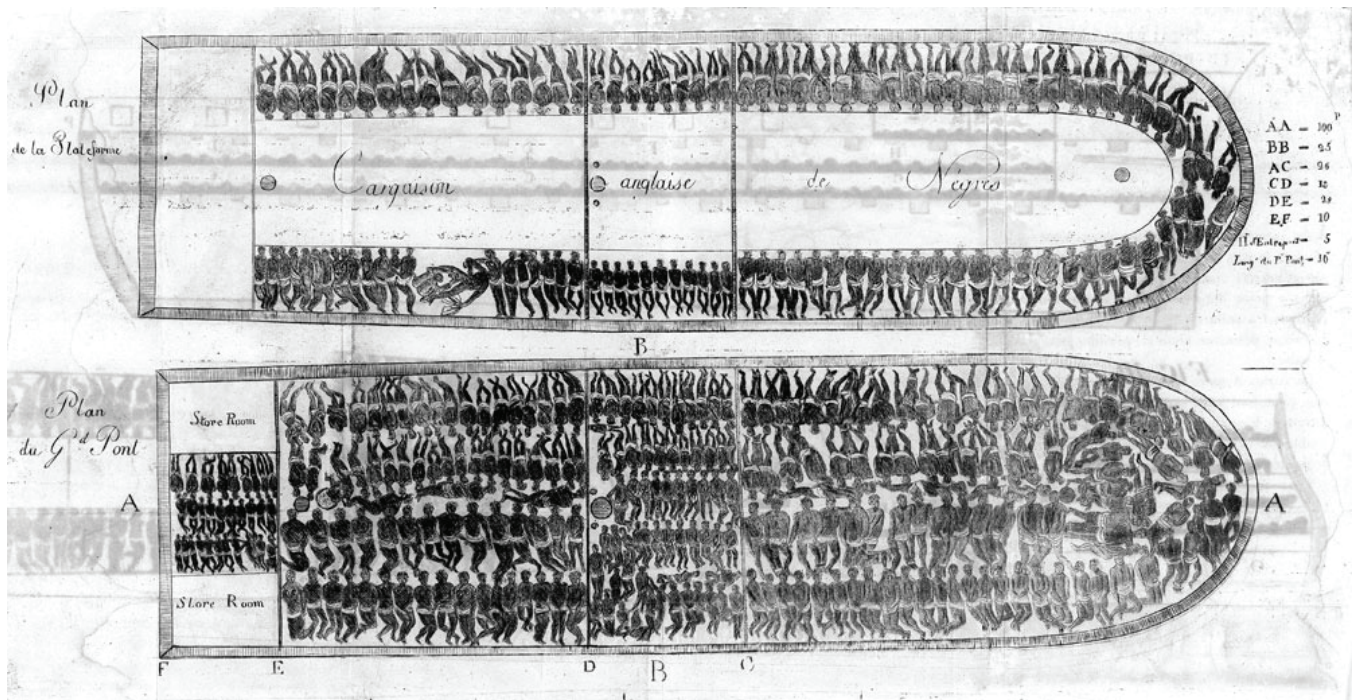 Plan
de la Plateforme
Cargaison anglaise de Nègres
AA = 100 P
BB = 25
AC = 26
CD =
DE =
EF = 10
H d'Entrepont = 5
Larg. du Pt Pont = 16
B
Plan
du Gd Pont
Store Room
A
A
Store Room
F E D B C